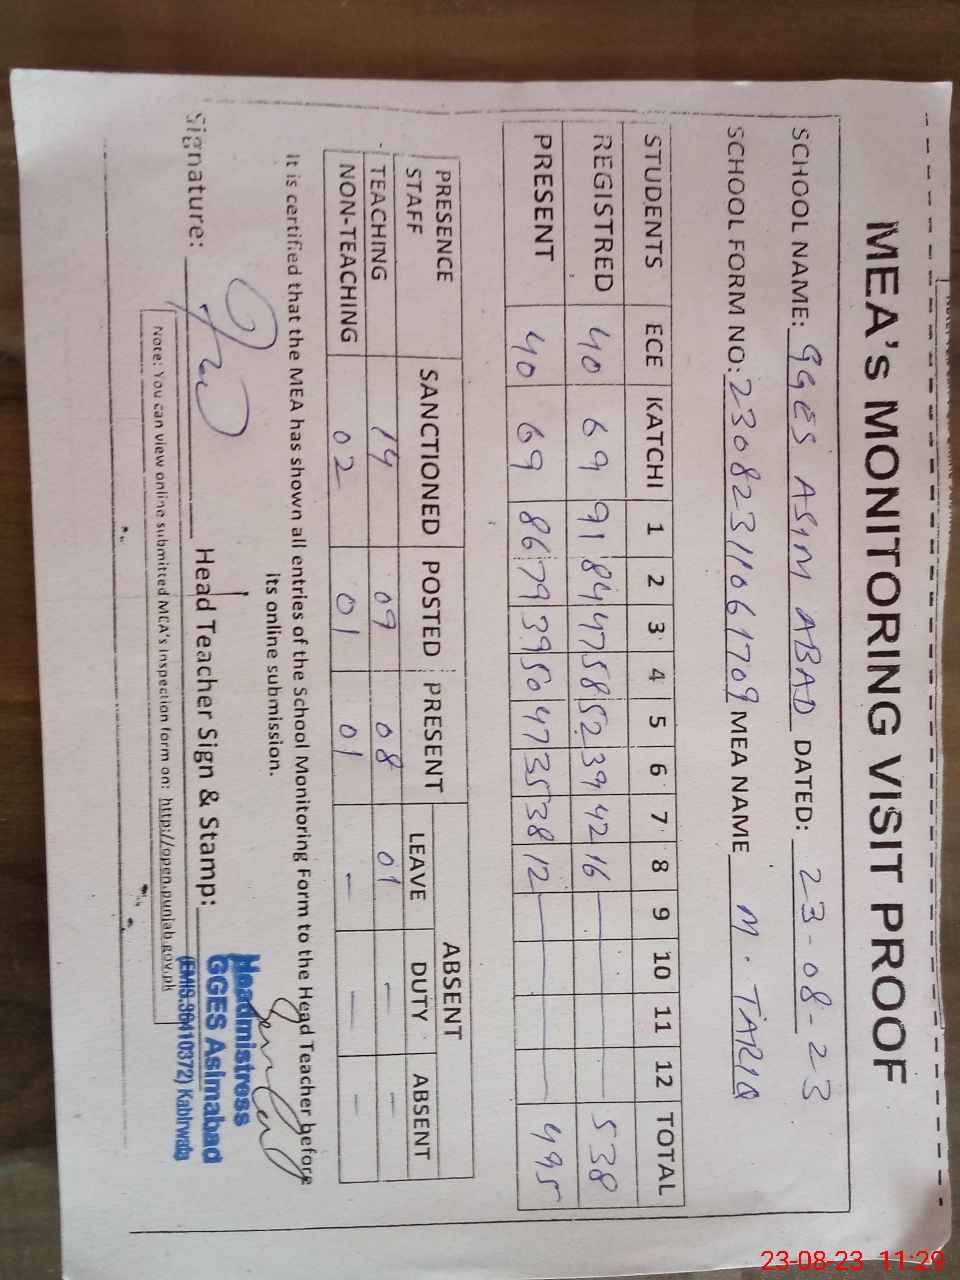 MEA's MONITORING VISIT PROOF
SCHOOL NAME: GGES ASIM ABAD DATED: 23-08-23
SCHOOL FORM NO: 23082311061709 MEA NAME M. TARIQ
STUDENTS ECE KATCHI 1 2 3 4 5 6 7 8 9 10 11 12 TOTAL
REGISTRED 40 69 91 84 47 58 52 39 42 16 — 538
PRESENT 40 69 86 79 39 50 47 35 38 12 — 495
PRESENCE SANCTIONED POSTED PRESENT ABSENT
STAFF LEAVE DUTY ABSENT
TEACHING 14 09 08 01 — —
NON-TEACHING 02 01 01 — — —
It is certified that the MEA has shown all entries of the School Monitoring Form to the Head Teacher before
its online submission.
Signature: Head Teacher Sign & Stamp:
Headmistress
GGES Asimabad
(EMIS.36410372) Kabirwala
Note: You can view online submitted MEA's inspection form on: http://open.punjab.gov.pk
23-08-23 11:29